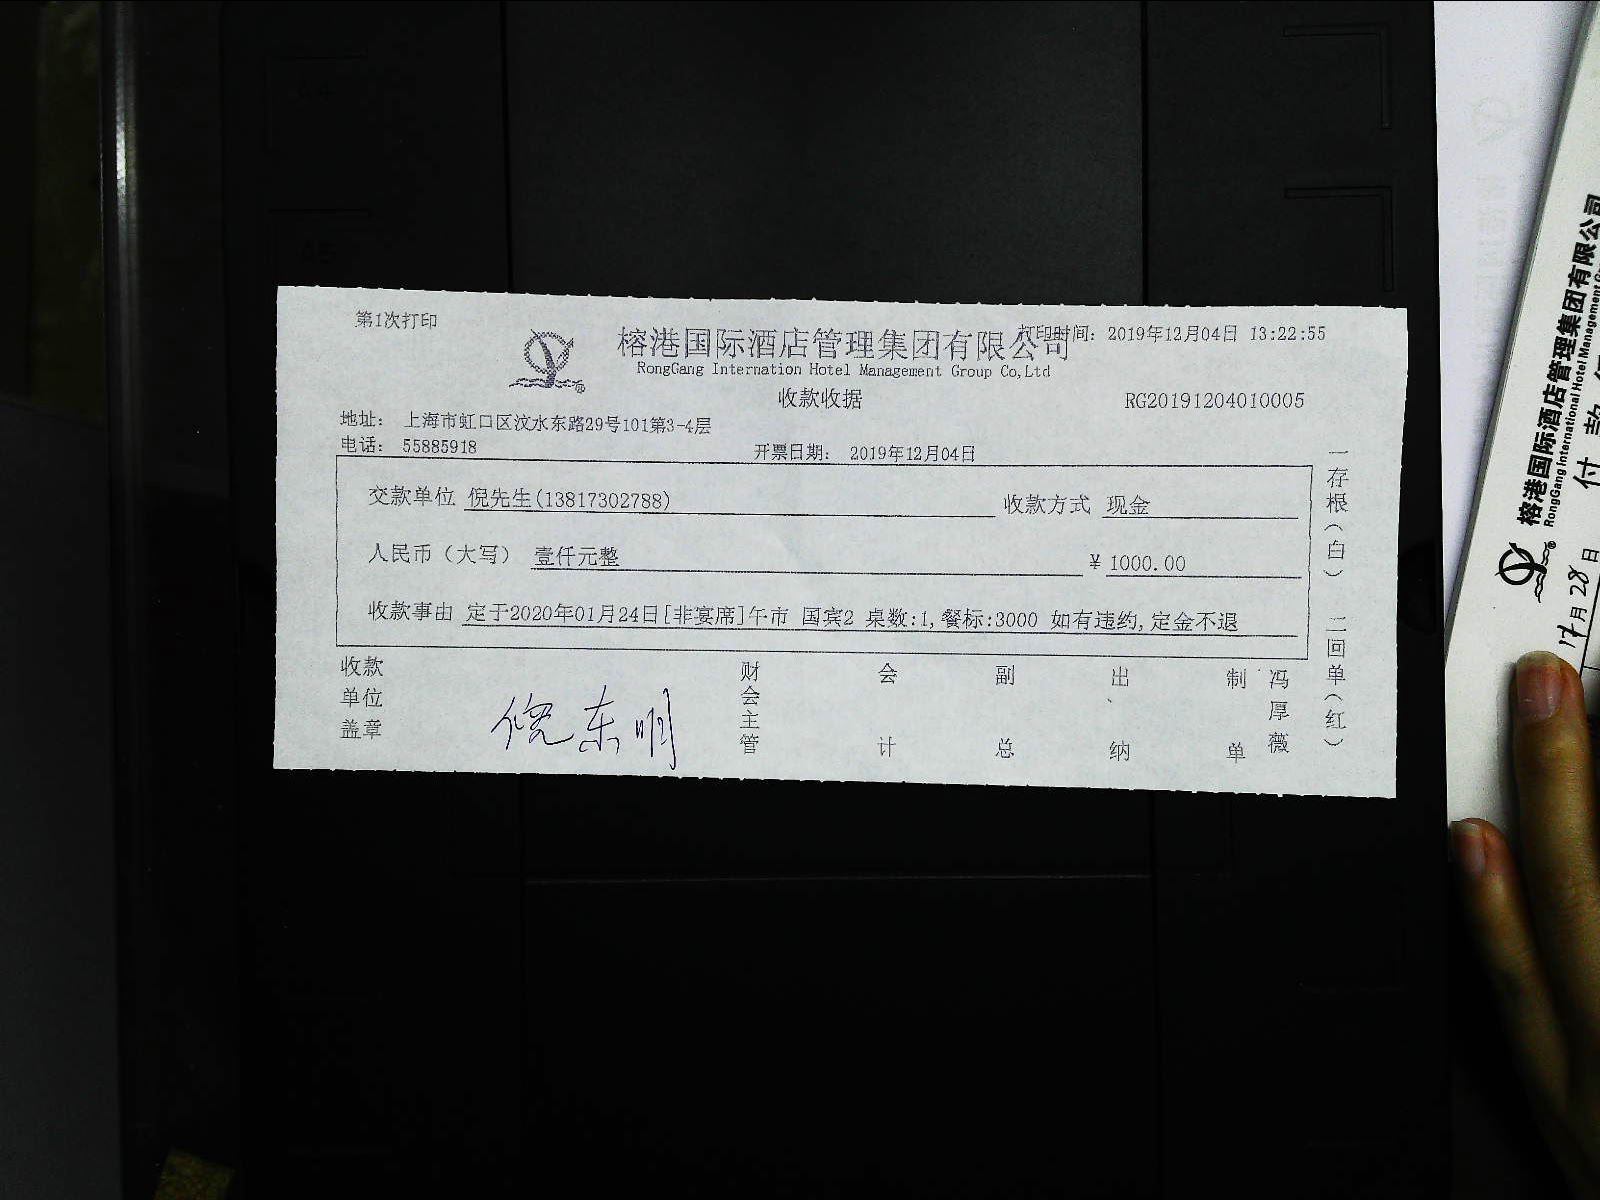 第1次打印
打印时间: 2019年12月04日 13:22:55
榕港国际酒店管理集团有限公司
RongGang Internation Hotel Management Group Co,Ltd
收款收据
RG20191204010005
地址: 上海市虹口区汶水东路29号101第3-4层
电话: 55885918
开票日期: 2019年12月04日
交款单位 倪先生(13817302788) 收款方式 现金
人民币（大写） 壹仟元整 ¥ 1000.00
收款事由 定于2020年01月24日[非宴席]午市 国宾2 桌数:1,餐标:3000 如有违约,定金不退
收款单位盖章
倪东明
财会主管
会计
副总
出纳
制单 冯厚薇
一存根(白) 二回单(红)
榕港国际酒店管理集团有限公司
RongGang International Hotel Management
付款
月 28 日